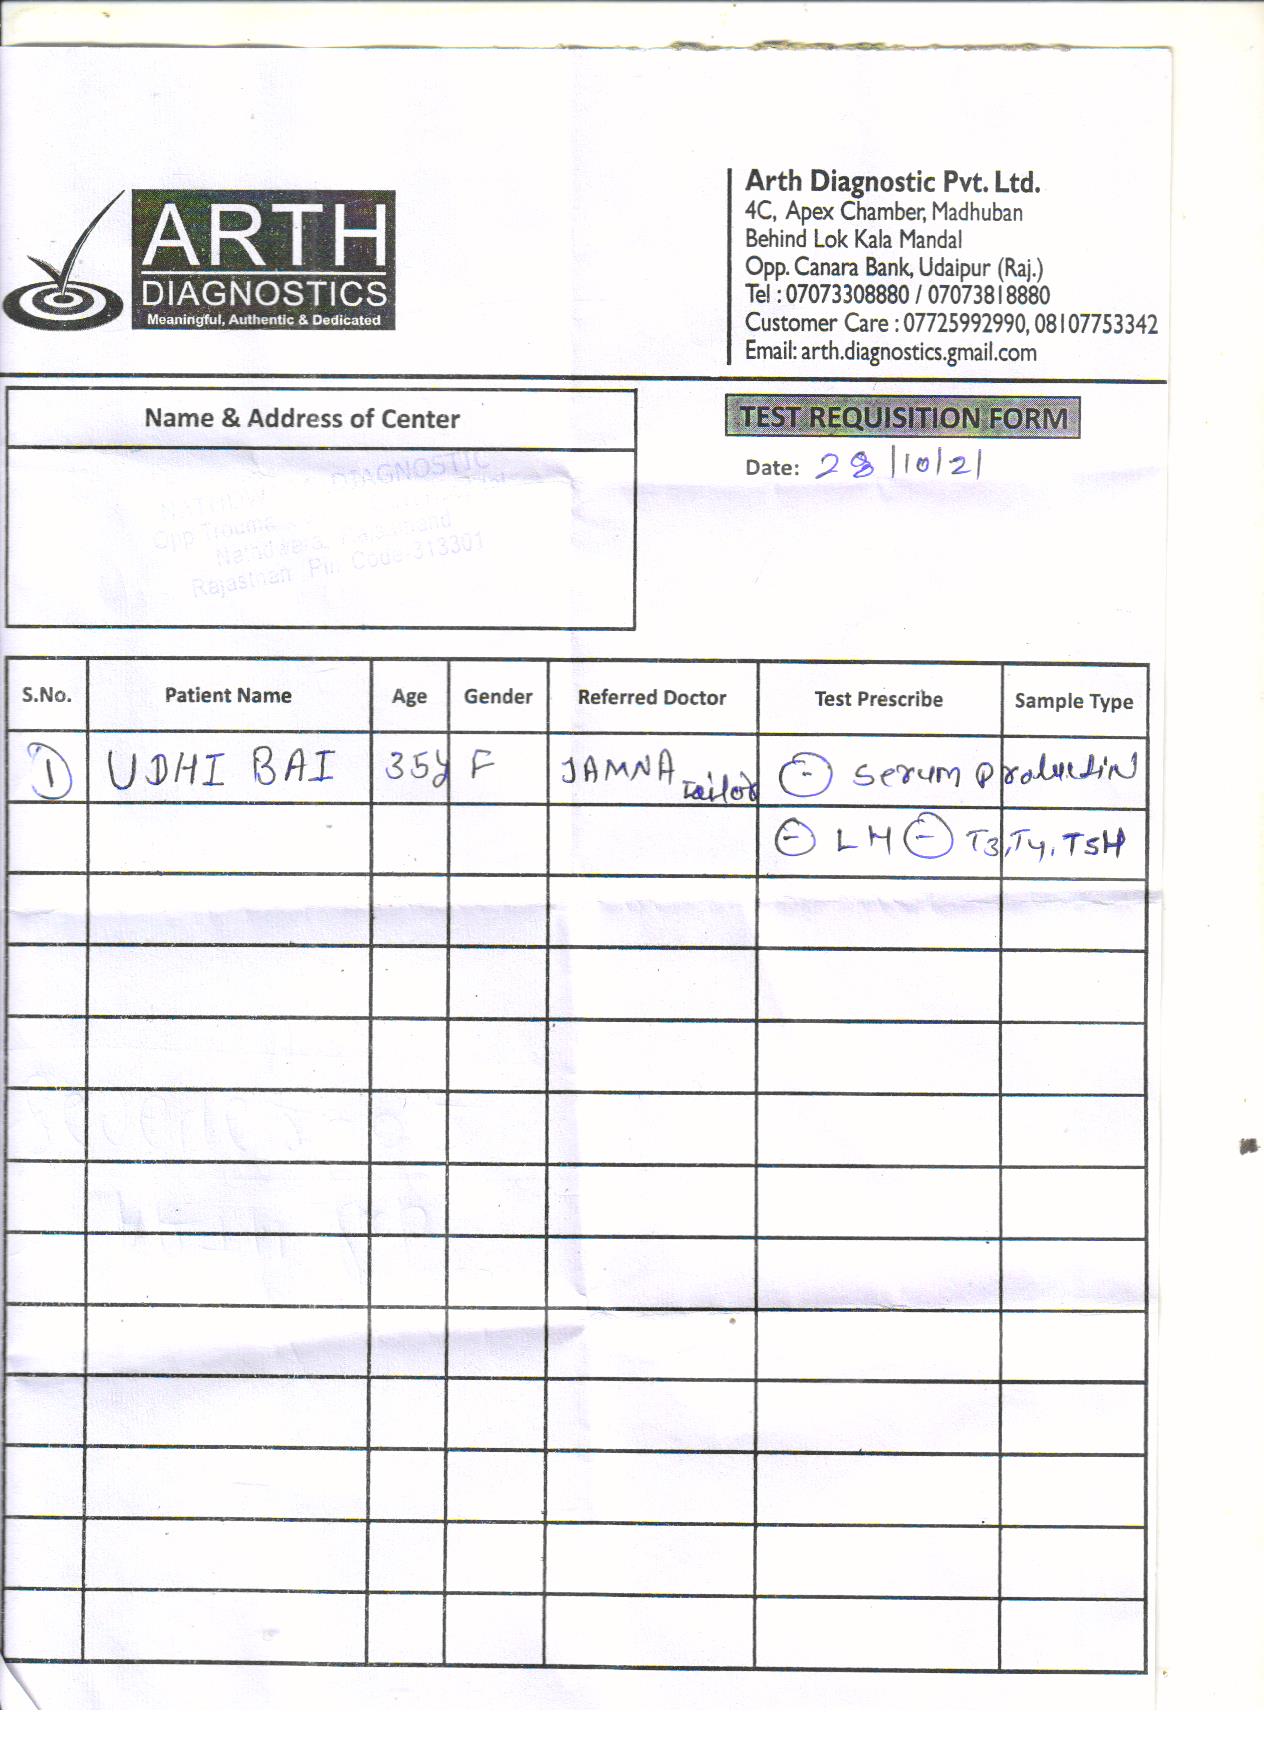 ARTH
DIAGNOSTICS
Meaningful, Authentic & Dedicated
Arth Diagnostic Pvt. Ltd.
4C, Apex Chamber, Madhuban
Behind Lok Kala Mandal
Opp. Canara Bank, Udaipur (Raj.)
Tel : 07073308880 / 07073818880
Customer Care : 07725992990, 08107753342
Email: arth.diagnostics.gmail.com
Name & Address of Center
TEST REQUISITION FORM
Date: 28/10/21
DIAGNOSTIC
Opp Trauma
Nathdwara, Rajsamand
Rajasthan Pin Code-313301
S.No. Patient Name Age Gender Referred Doctor Test Prescribe Sample Type
1 UDHI BAI 35y F JAMNA Tailor Serum Prolactin
LH T3, T4, TSH